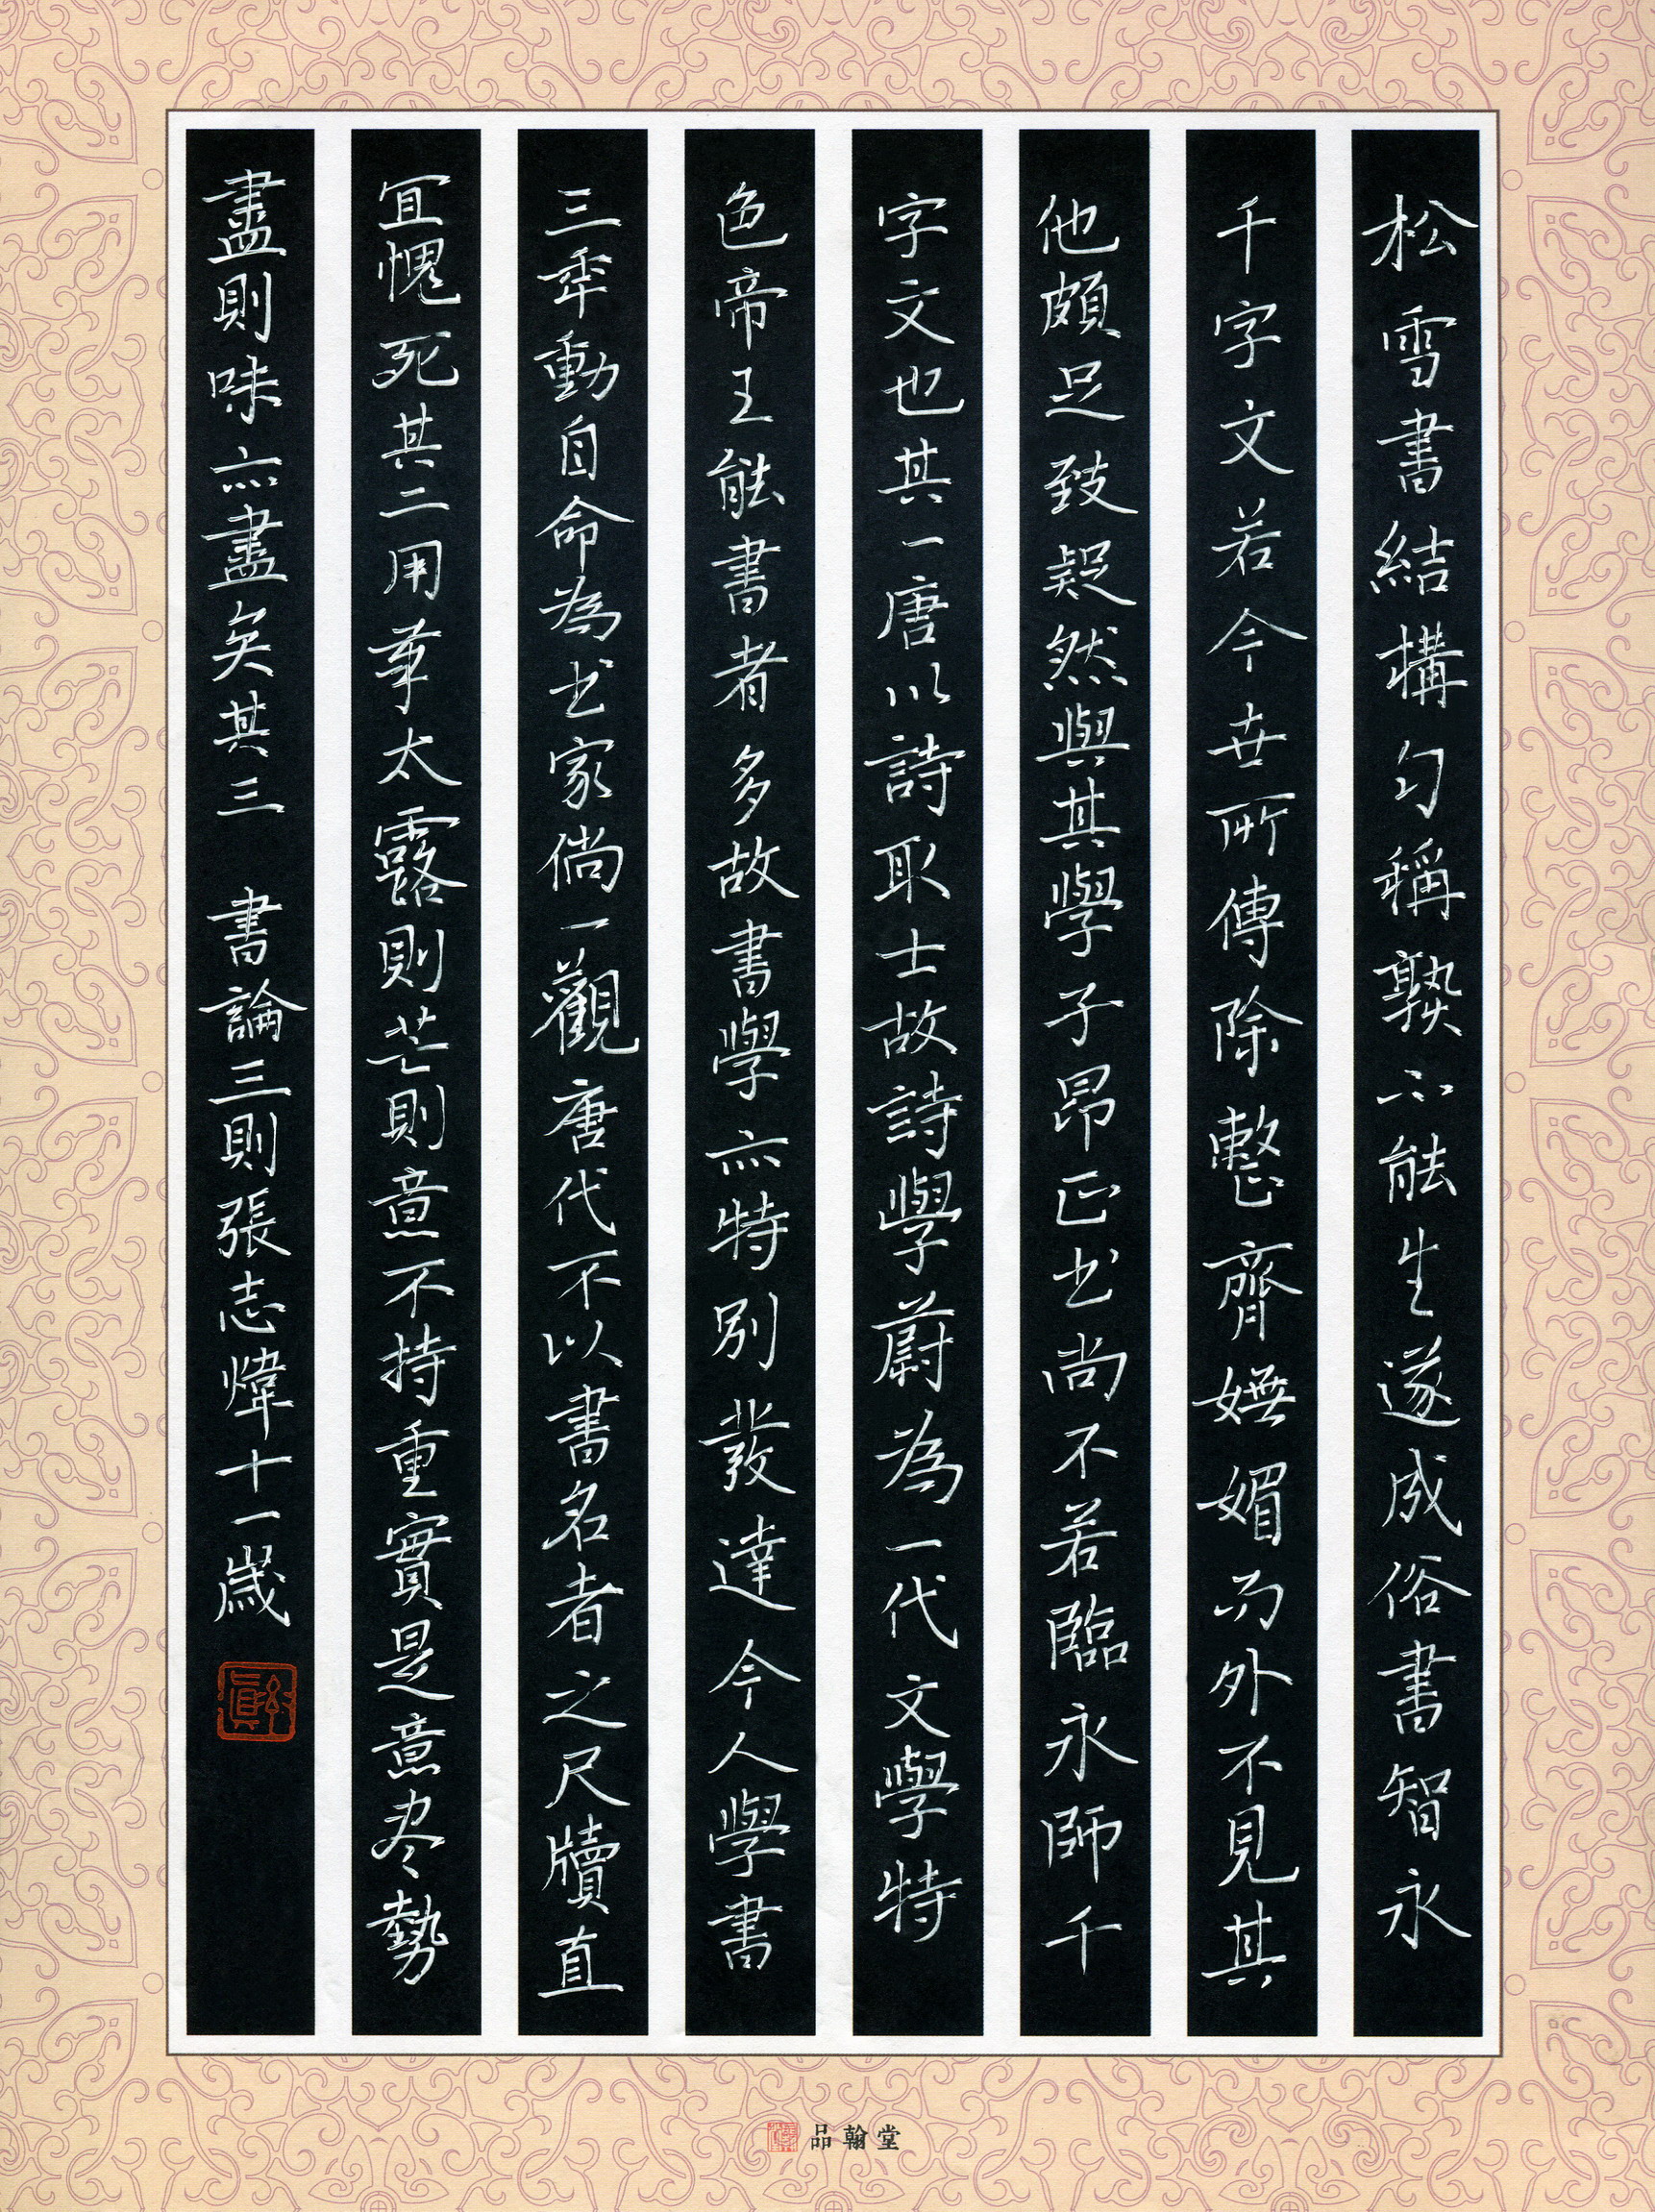 松雪書結構勻稱熟不能生遂成俗書智永
千字文若今世所傳除整齊嫵媚而外不見其
他頗足致疑然與其學子昂正书尚不若臨永師千
字文也其一唐以詩取士故詩學蔚為一代文學特
色帝王能書者多故書學亦特別發達今人學書
三年動自命為书家倘一觀唐代不以書名者之尺牘直
宜愧死其二用筆太露則芒則意不持重實是意尽勢
盡則味亦盡矣其三 書論三則張志煒十一歲
品翰堂